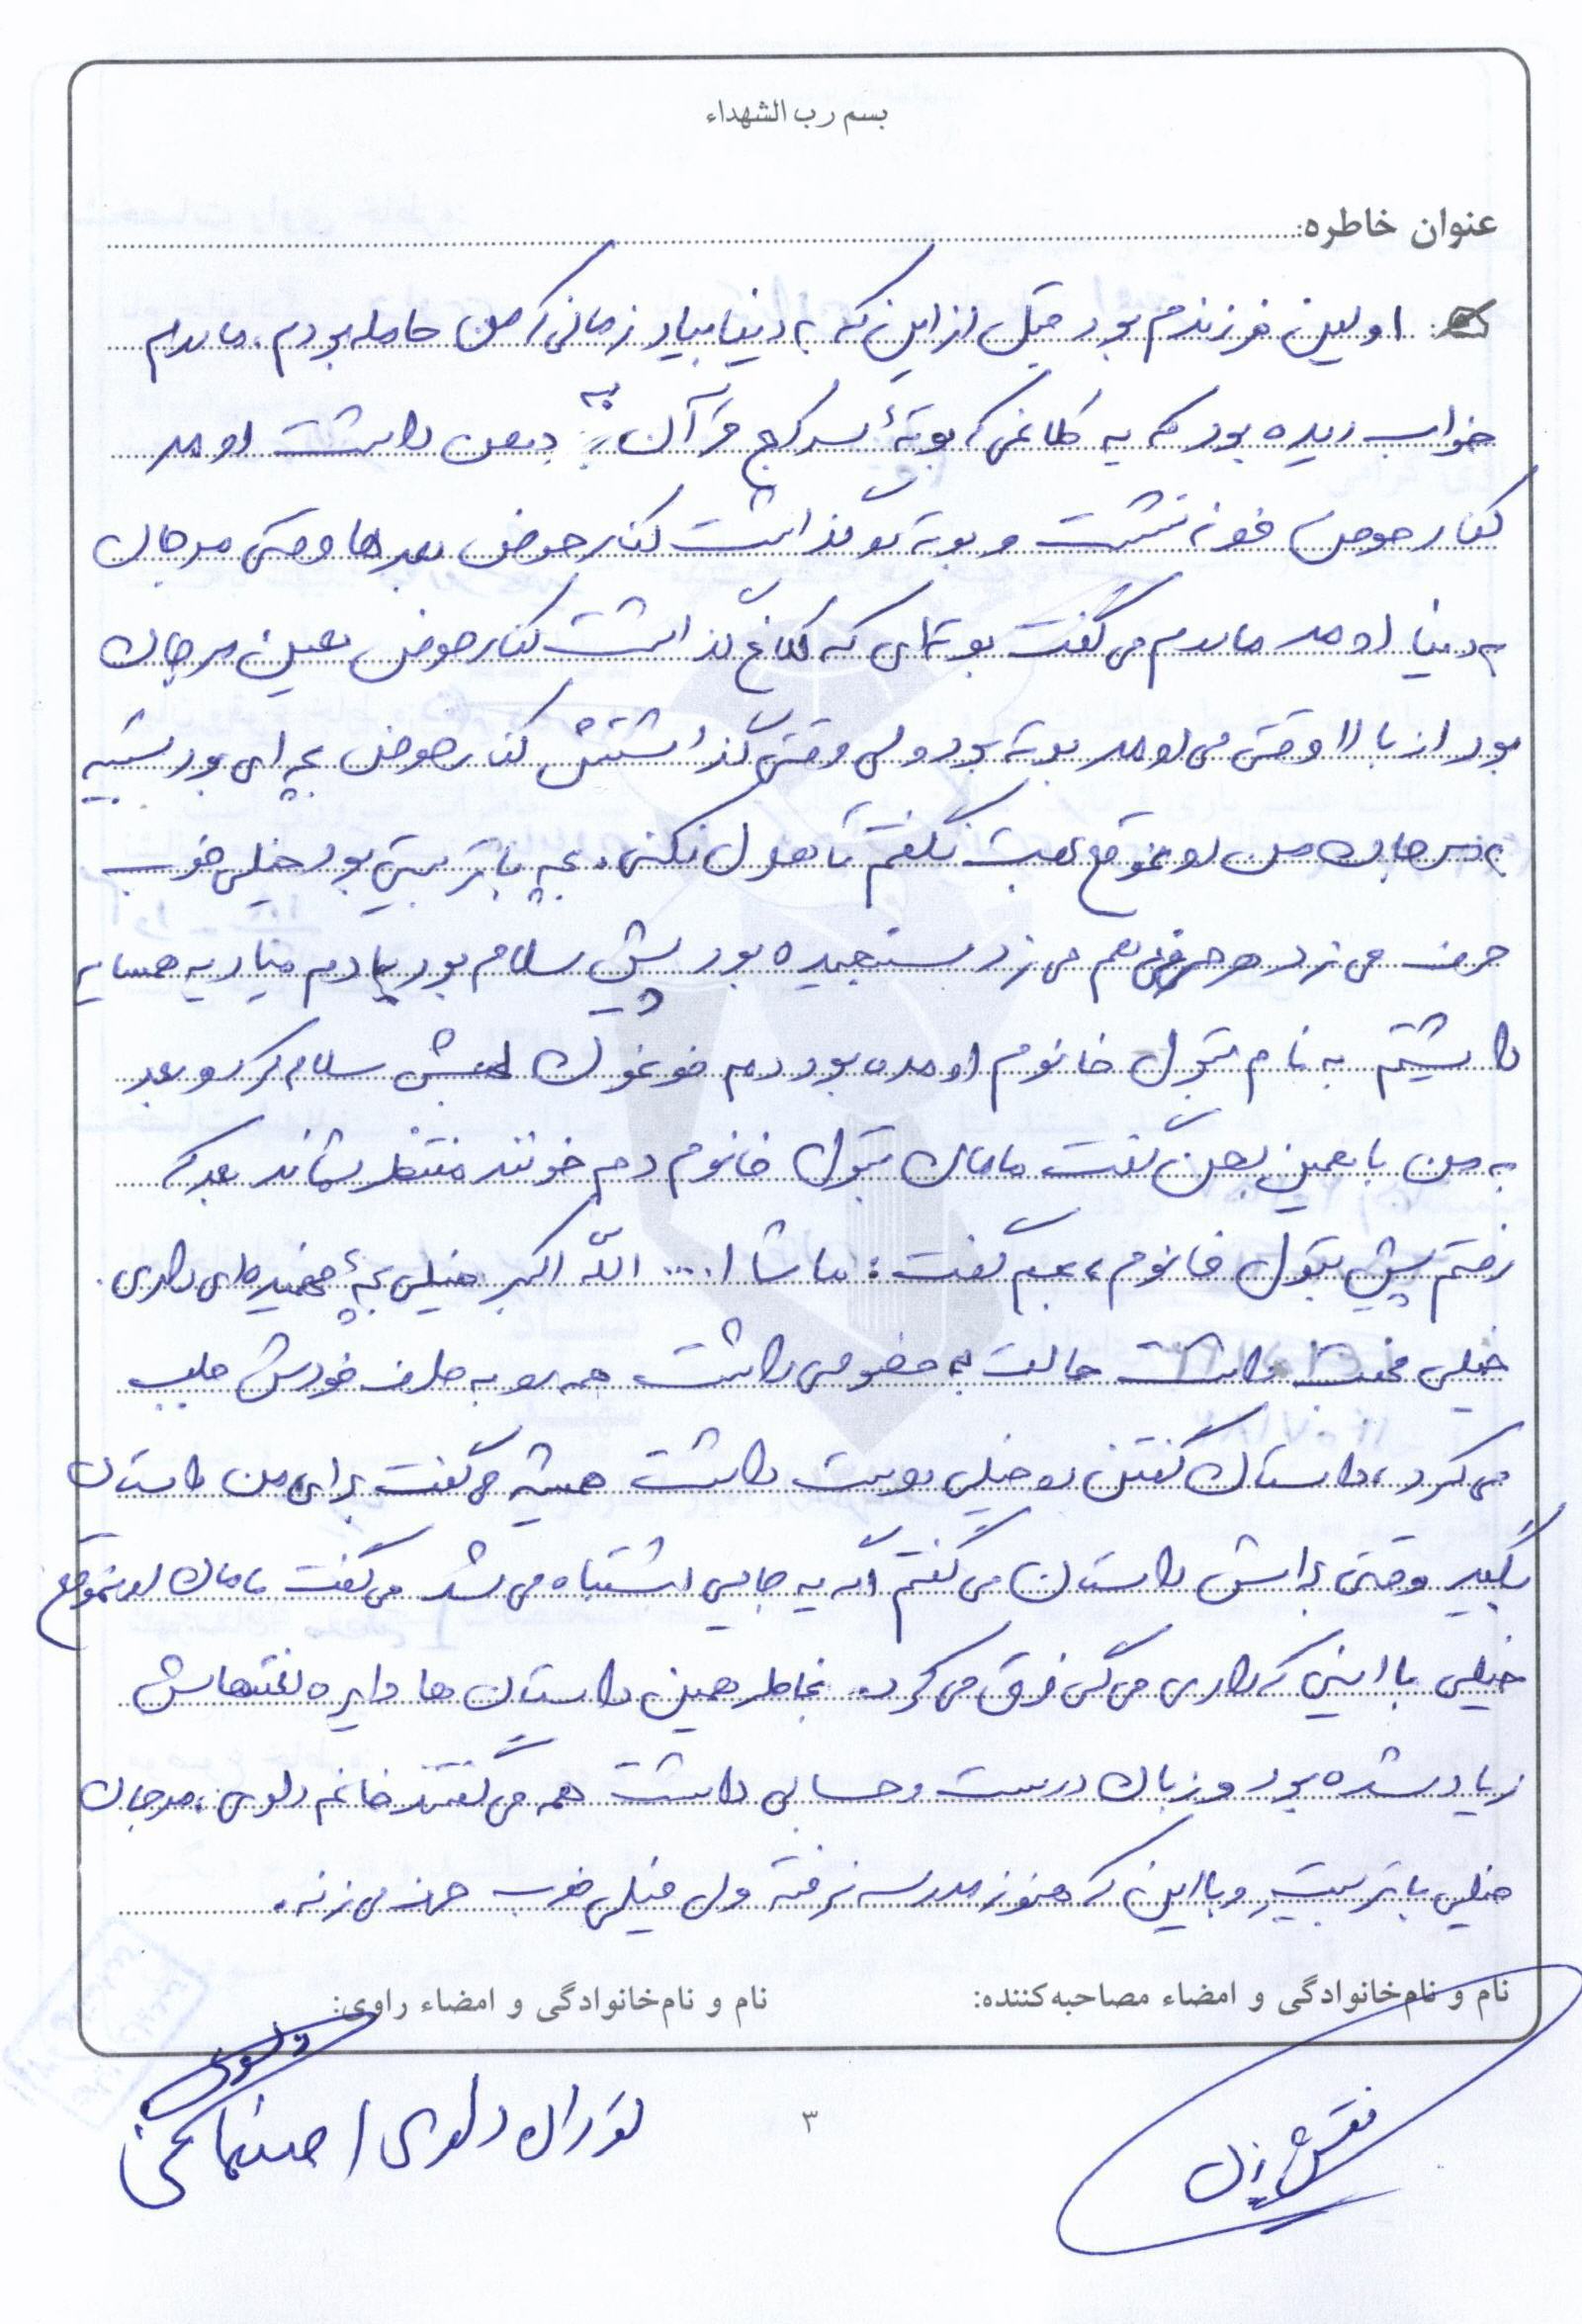 بسم رب الشهداء
عنوان خاطره:
اولین فرزندم بود قبل از این که به دنیا بیاد زمانی که من حامله بودم، مادرم
خواب دیده بود که یه کلاغی که بوتهٔ قرآن به دهن داشت اومد
کنار حوض خونه نشست و بوته رو گذاشت کنار حوض بعدها وقتی مرجان
به دنیا اومد مادرم می گفت بوته‌ای که کلاغ گذاشت کنار حوض عین مرجان
بود از بالا وقتی می اومد بوته بود ولی وقتی گذاشتش کنار حوض بچه ای بود شبیه
به مرجان من اونموقع بهت نگفتم تا هول نکنی. بچه باتربیتی بود خیلی خوب
حرف می زد هر حرفی هم می زد سنجیده بود پیش سلام بود یادم میاد یه همسایه
داشتیم به نام بتول خانوم اومده بود دم خونمون بهش سلام کرد و بعد
به من با همین لحن گفت مامان بتول خانوم دم خونند منتظر شماند بعد که
رفتم پیش بتول خانوم، بهم گفت: ماشا ا.... الله اکبر خیلی بچهٔ فهمیده‌ای داری.
خیلی محبت داشت حالت به خصوصی داشت همه رو به طرف خودش جلب
می کرد، داستان گفتن رو خیلی دوست داشت همیشه می گفت برای من داستان
بگید وقتی براش داستان می گفتم اگه یه جایی اشتباه می شد می گفت مامان اونموقع
خیلی با اینی که داری می گی فرق می کرد. بخاطر همین داستان ها دایره لغتهاش
زیاد شده بود و زبان درست و حسابی داشت همه می گفتند خانم دلوی، مرجان
خیلی با تربیتِ و با این که هنوز مدرسه نرفته ولی خیلی خوب حرف می زنه.
نام و نام‌خانوادگی و امضاء مصاحبه‌کننده:
نام و نام‌خانوادگی و امضاء راوی:
دلوی
۳